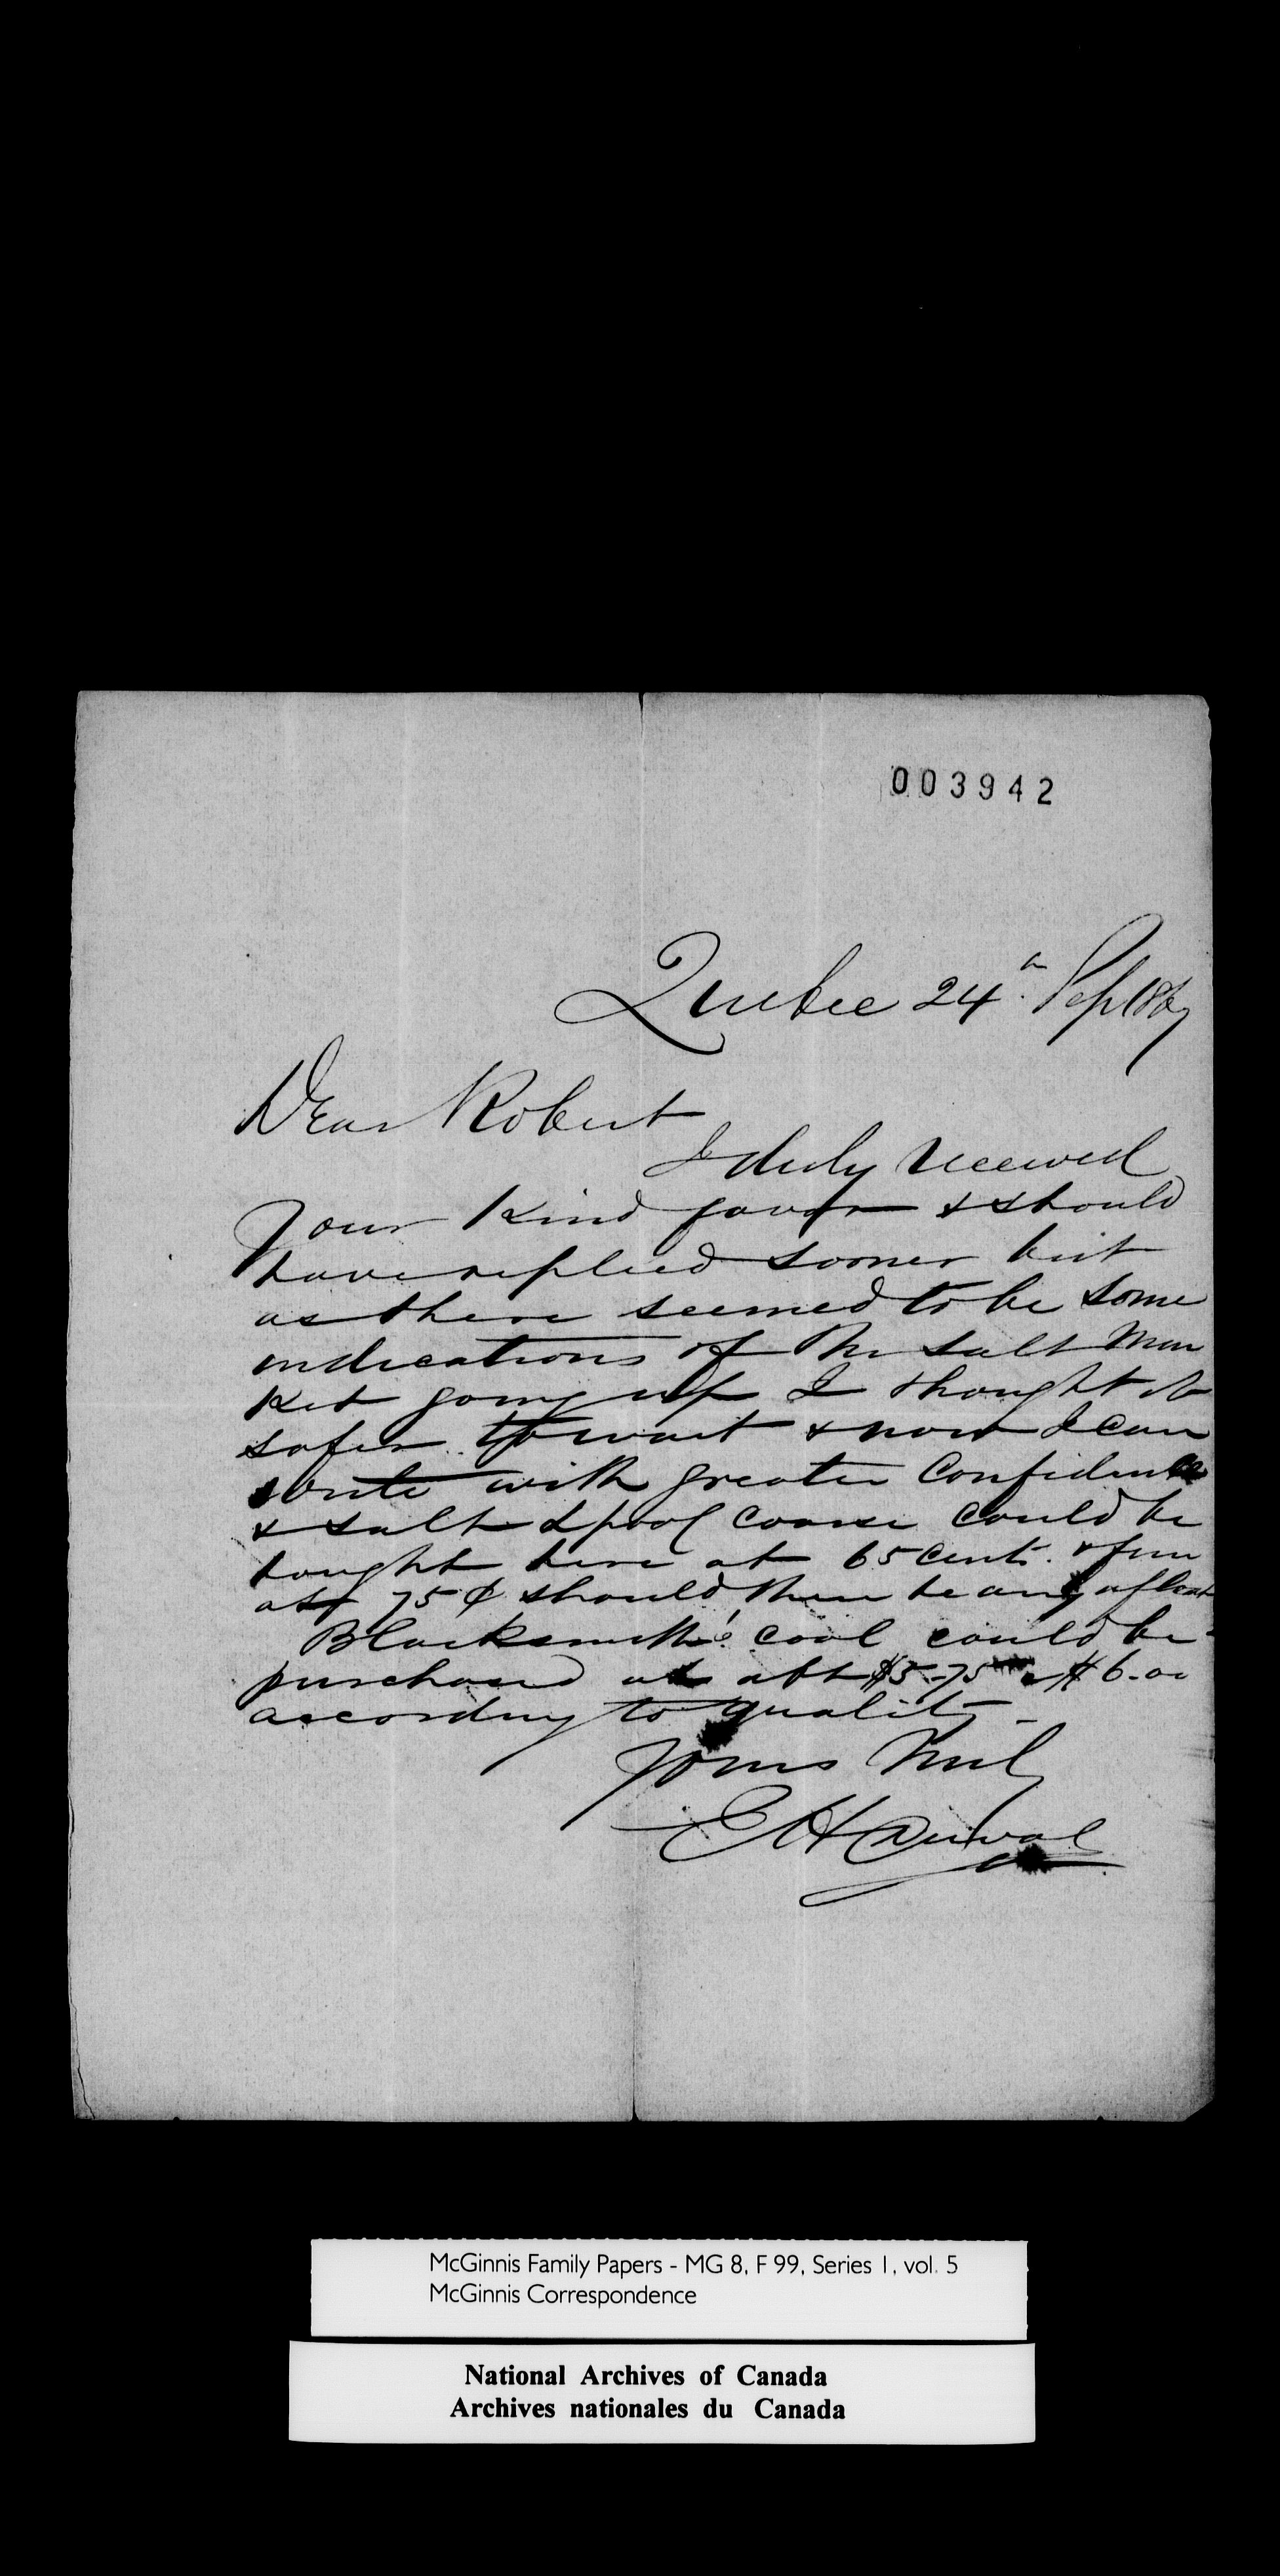 003942
Quebec 24th Sept 1867
Dear Robert
I duly received
your kind favor & should
have replied sooner but
as there seemed to be some
indications of the salt Mar
ket going up I thought it
safer to wait & now I can
write with greater Confidence
& salt Lpool coarse could be
bought here at 65 cents. & fine
at 75 ¢ should there be any afloat
Blacksmith's coal could be
purchased at abt $5-75 a $6-00
according to quality-
Yours truly
E H Duval
McGinnis Family Papers - MG 8, F 99, Series 1, vol. 5
McGinnis Correspondence
National Archives of Canada
Archives nationales du Canada